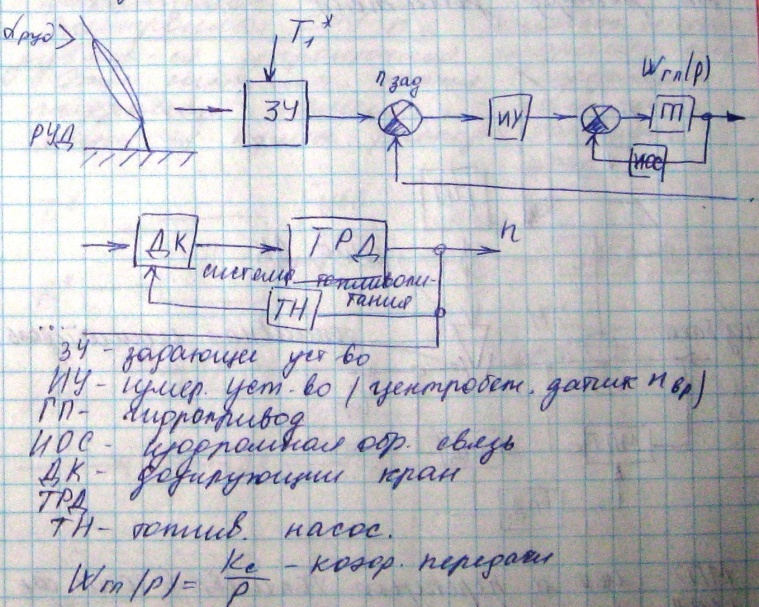 αруд
T₁*
РУД
ЗУ
n зад
ИУ
Wгп(p)
ГП
ИОС
ДК
ТРД
n
система топливопи-
тания
ТН
ЗУ - задающее уст-во
ИУ - измер. уст-во (центробеж. датчик n вр)
ГП - гидропривод
ИОС - изодромная обр. связь
ДК - дозирующий кран
ТРД
ТН - топлив. насос.
Wгп(p) = Kc/p - коэф. передачи